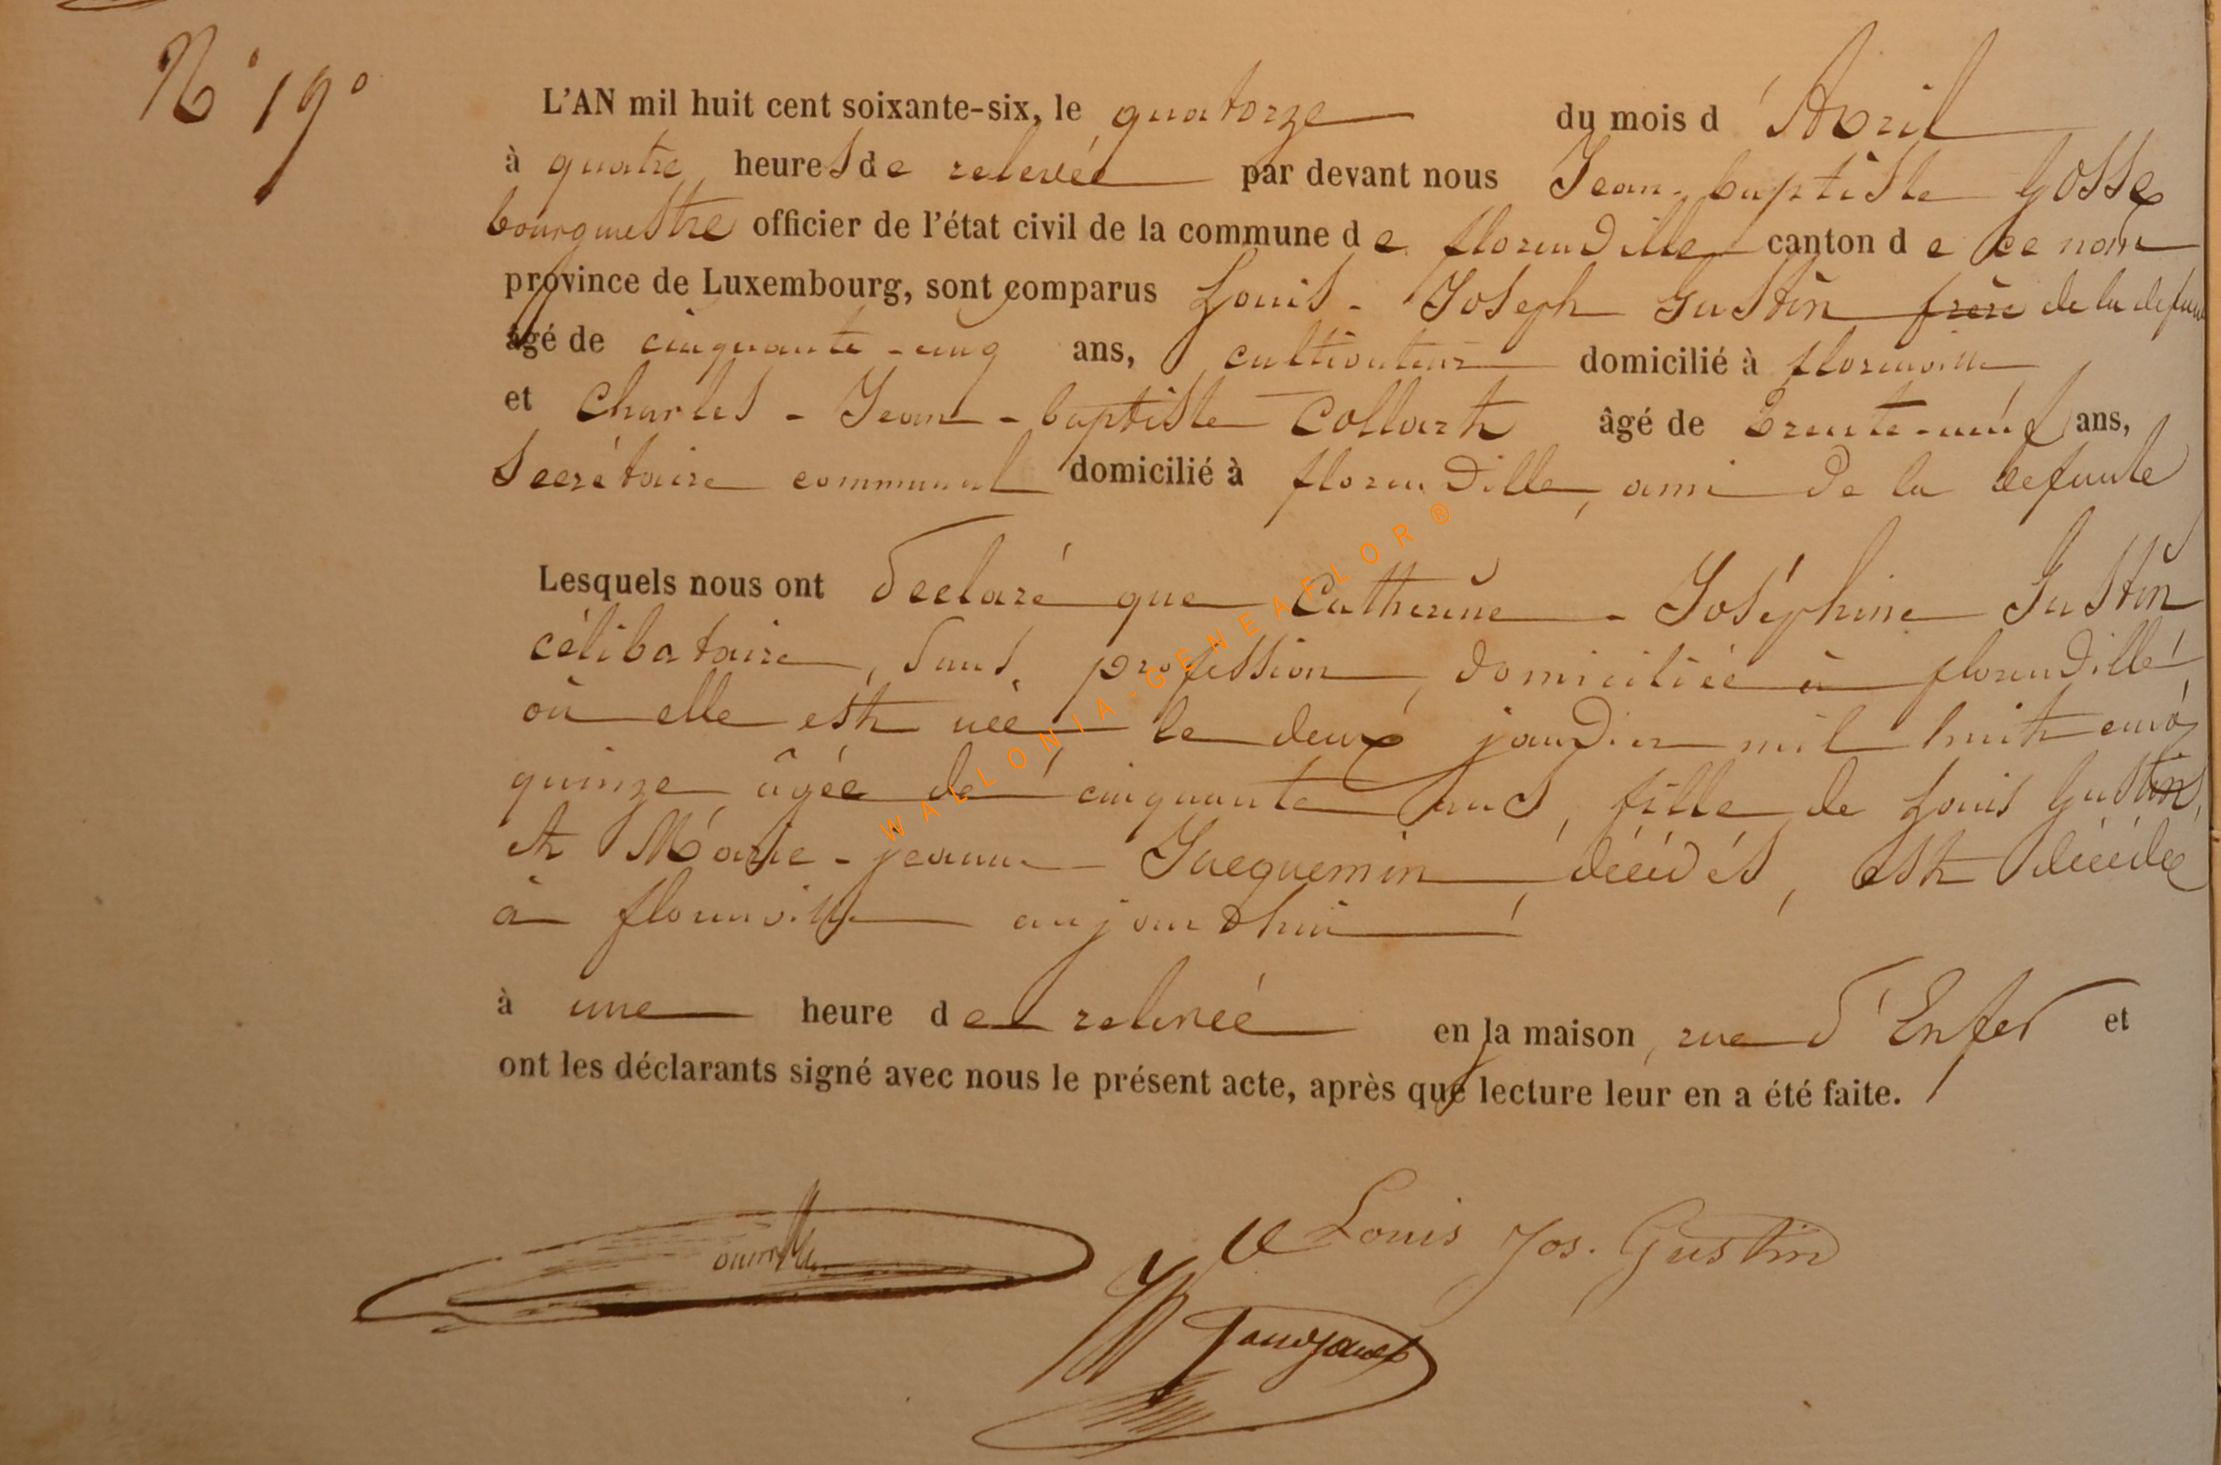 N° 19°
L'AN mil huit cent soixante-six, le quatorze du mois d'Avril
à quatre heures de relevée par devant nous Jean-baptiste Gosse
bourgmestre officier de l'état civil de la commune de florenville canton de ce nom
province de Luxembourg, sont comparus Louis-Joseph Gustin frère de la defunte
âgé de cinquante-cinq ans, cultivateur domicilié à florenville
et Charles-Jean-baptiste Collart âgé de trente-neuf ans,
secrétaire communal domicilié à florenville, ami de la defunte
Lesquels nous ont declaré que Catherine-Joséphine Gustin
célibataire, sans profession, domiciliée à florenville,
où elle est née le deux janvier mil huit cent
quinze, âgée de cinquante ans, fille de Louis Gustin,
et Marie-jeanne Jacquemin, décédés, est décédée
à florenville aujourdhui
à une heure de relevée en la maison, rue d'Enfer et
ont les déclarants signé avec nous le présent acte, après que lecture leur en a été faite.
Louis Jos. Gustin
WALLONIA-GENEAFLOR®